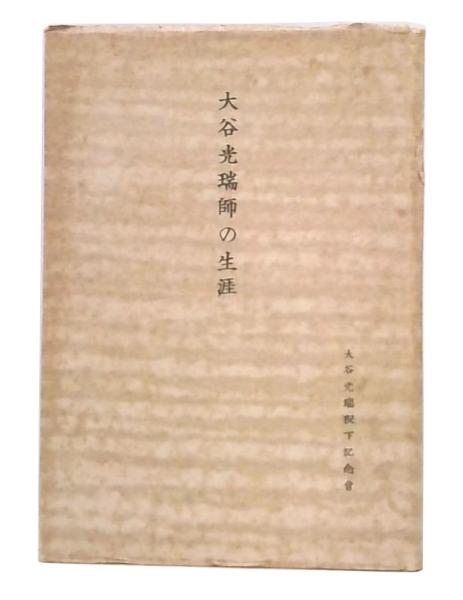 大谷光瑞師の生涯
大谷光瑞猊下記念會